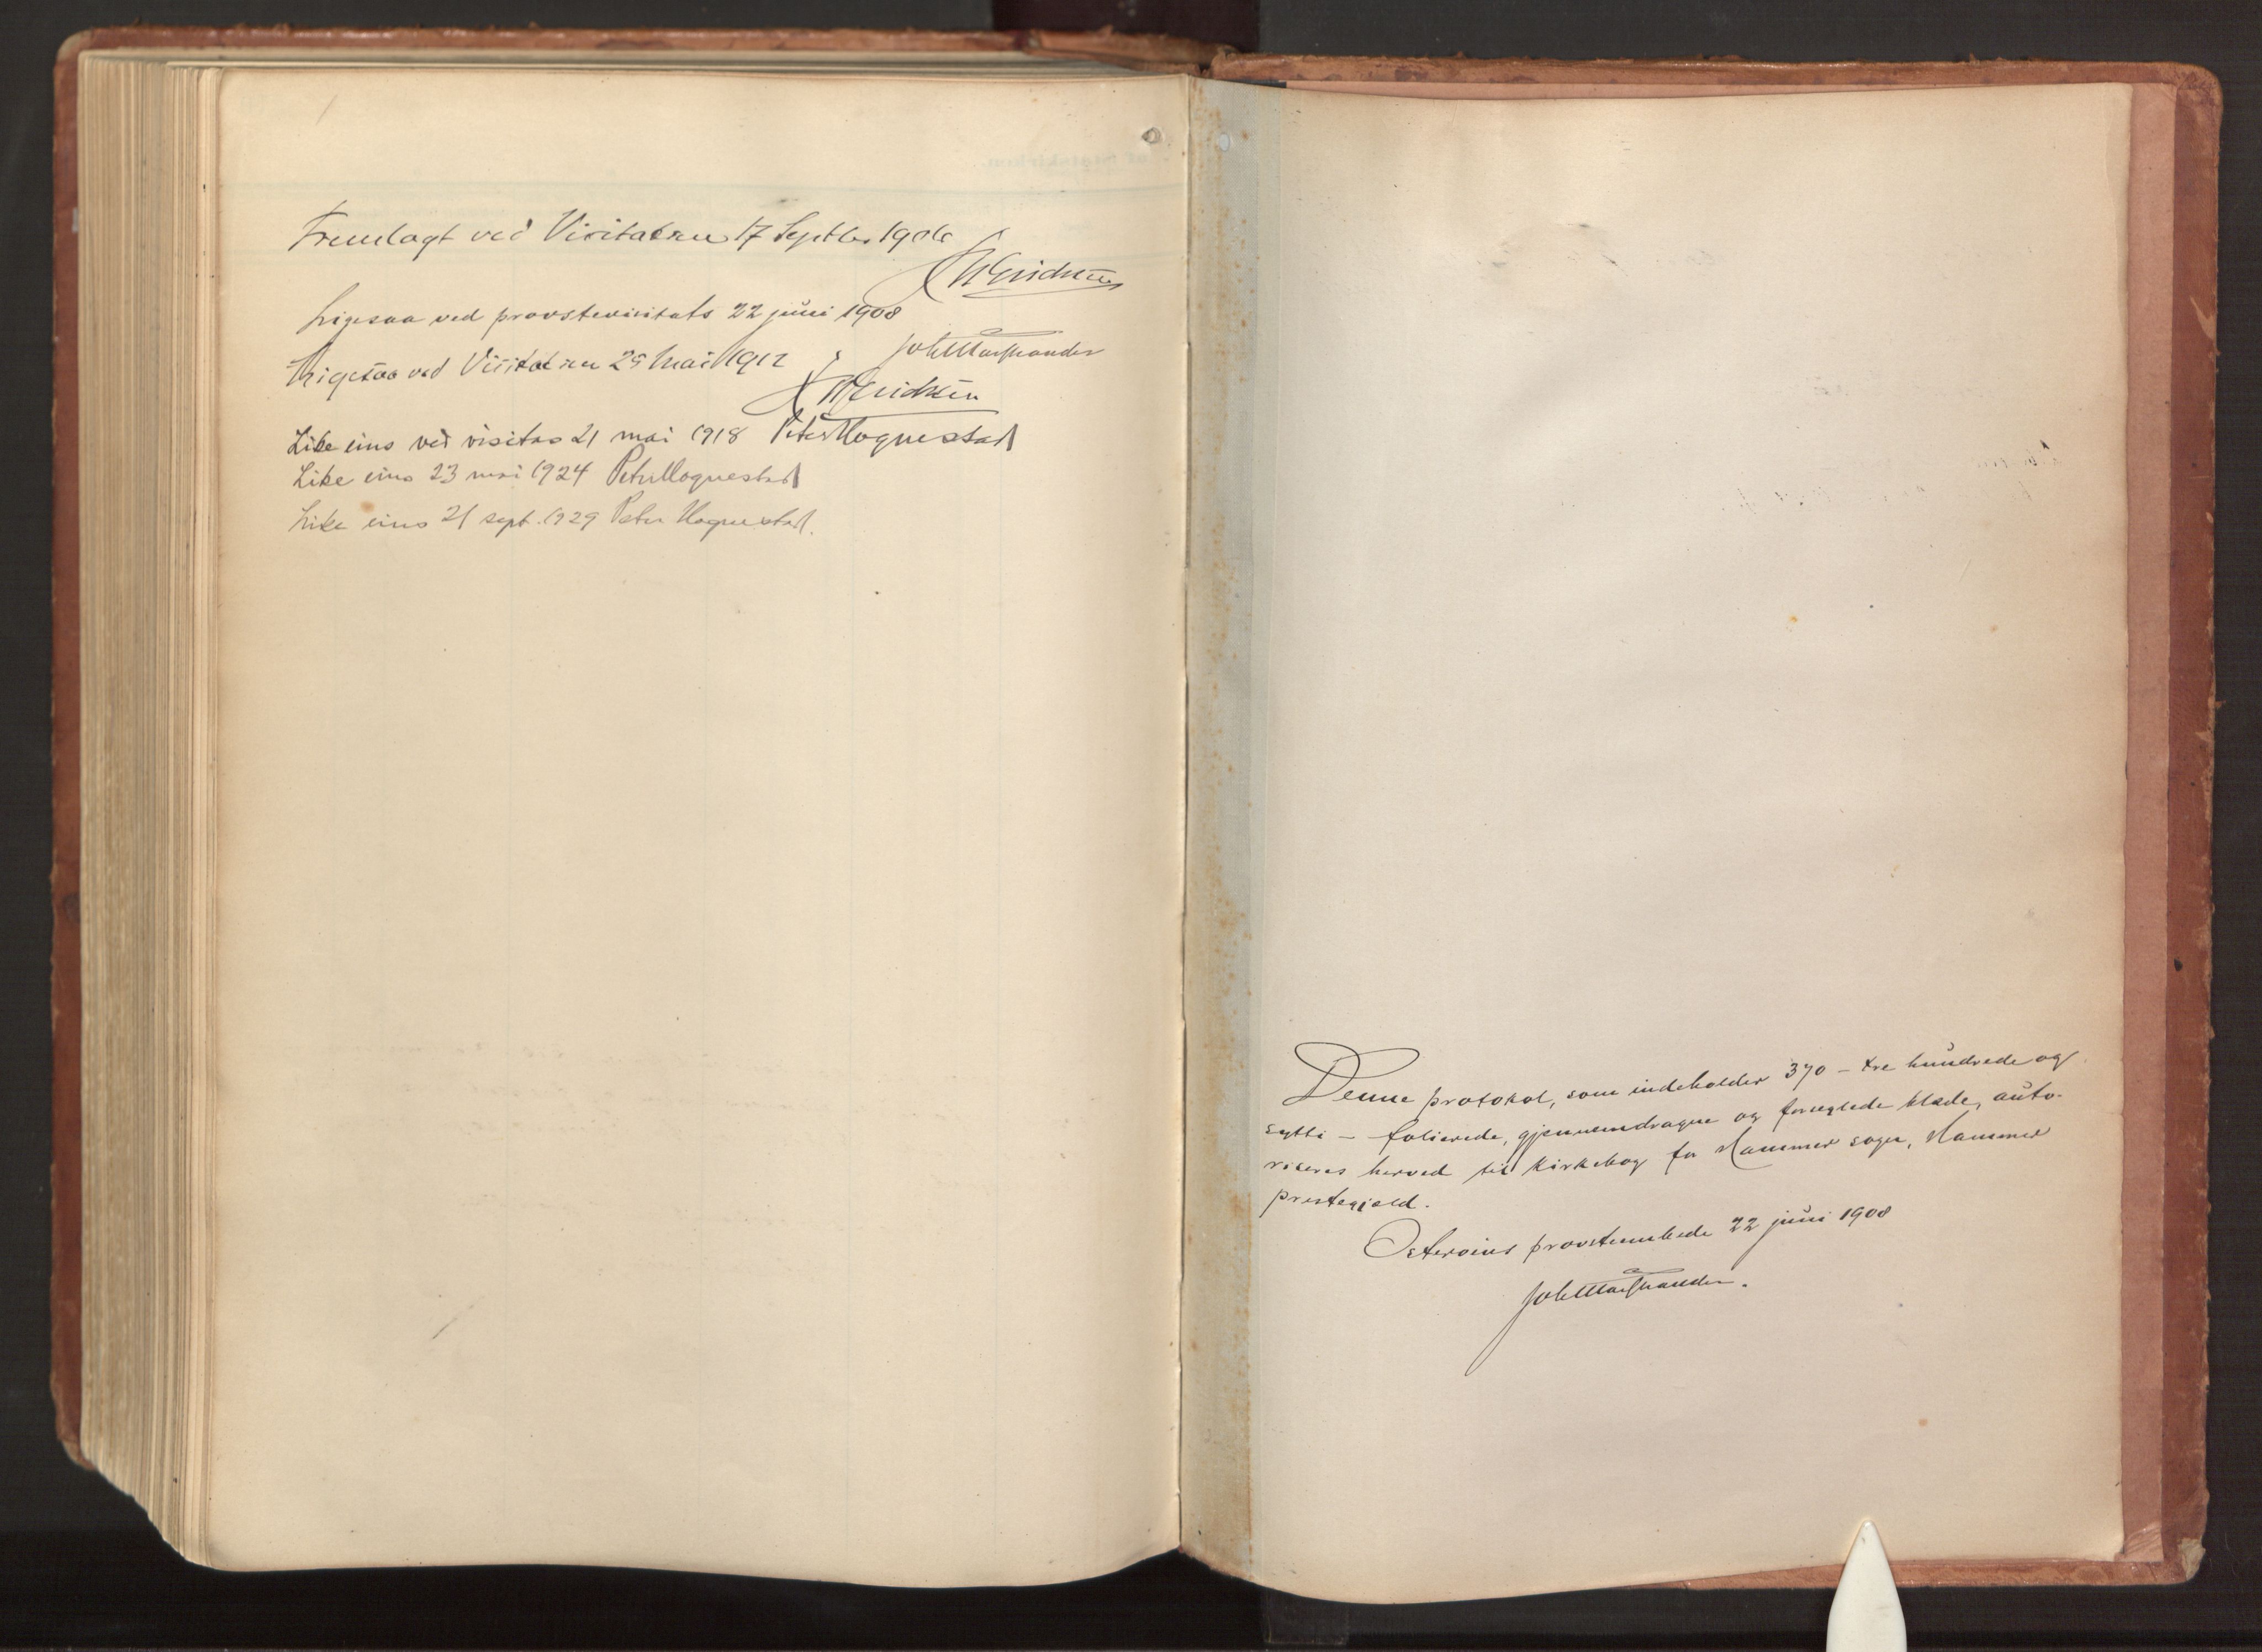 Fremlagt ved Visitatsen 17 Septbr 1906
J W Eriksen
Ligesaa ved provstevisitats 22 juni 1908
Joh Markhander
Ligesaa ved Visitatsen 29 Mai 1912
J W Eriksen
Like eins ved visitas 21 mai 1918 Peter Hognestad
Like eins 23 mai 1924 Peter Hognestad
Like eins 21 sept. 1929 Peter Hognestad.
Denne protokol, som indeholder 370 – tre hundrede og
sytti – folierede, gjennemdragne og forseglede blade, auto-
riseres herved til kirkebog for Hammer sogn, Hammer
prestegjeld.
Osterøiens provsteembede 22 juni 1908
Joh Markhander.